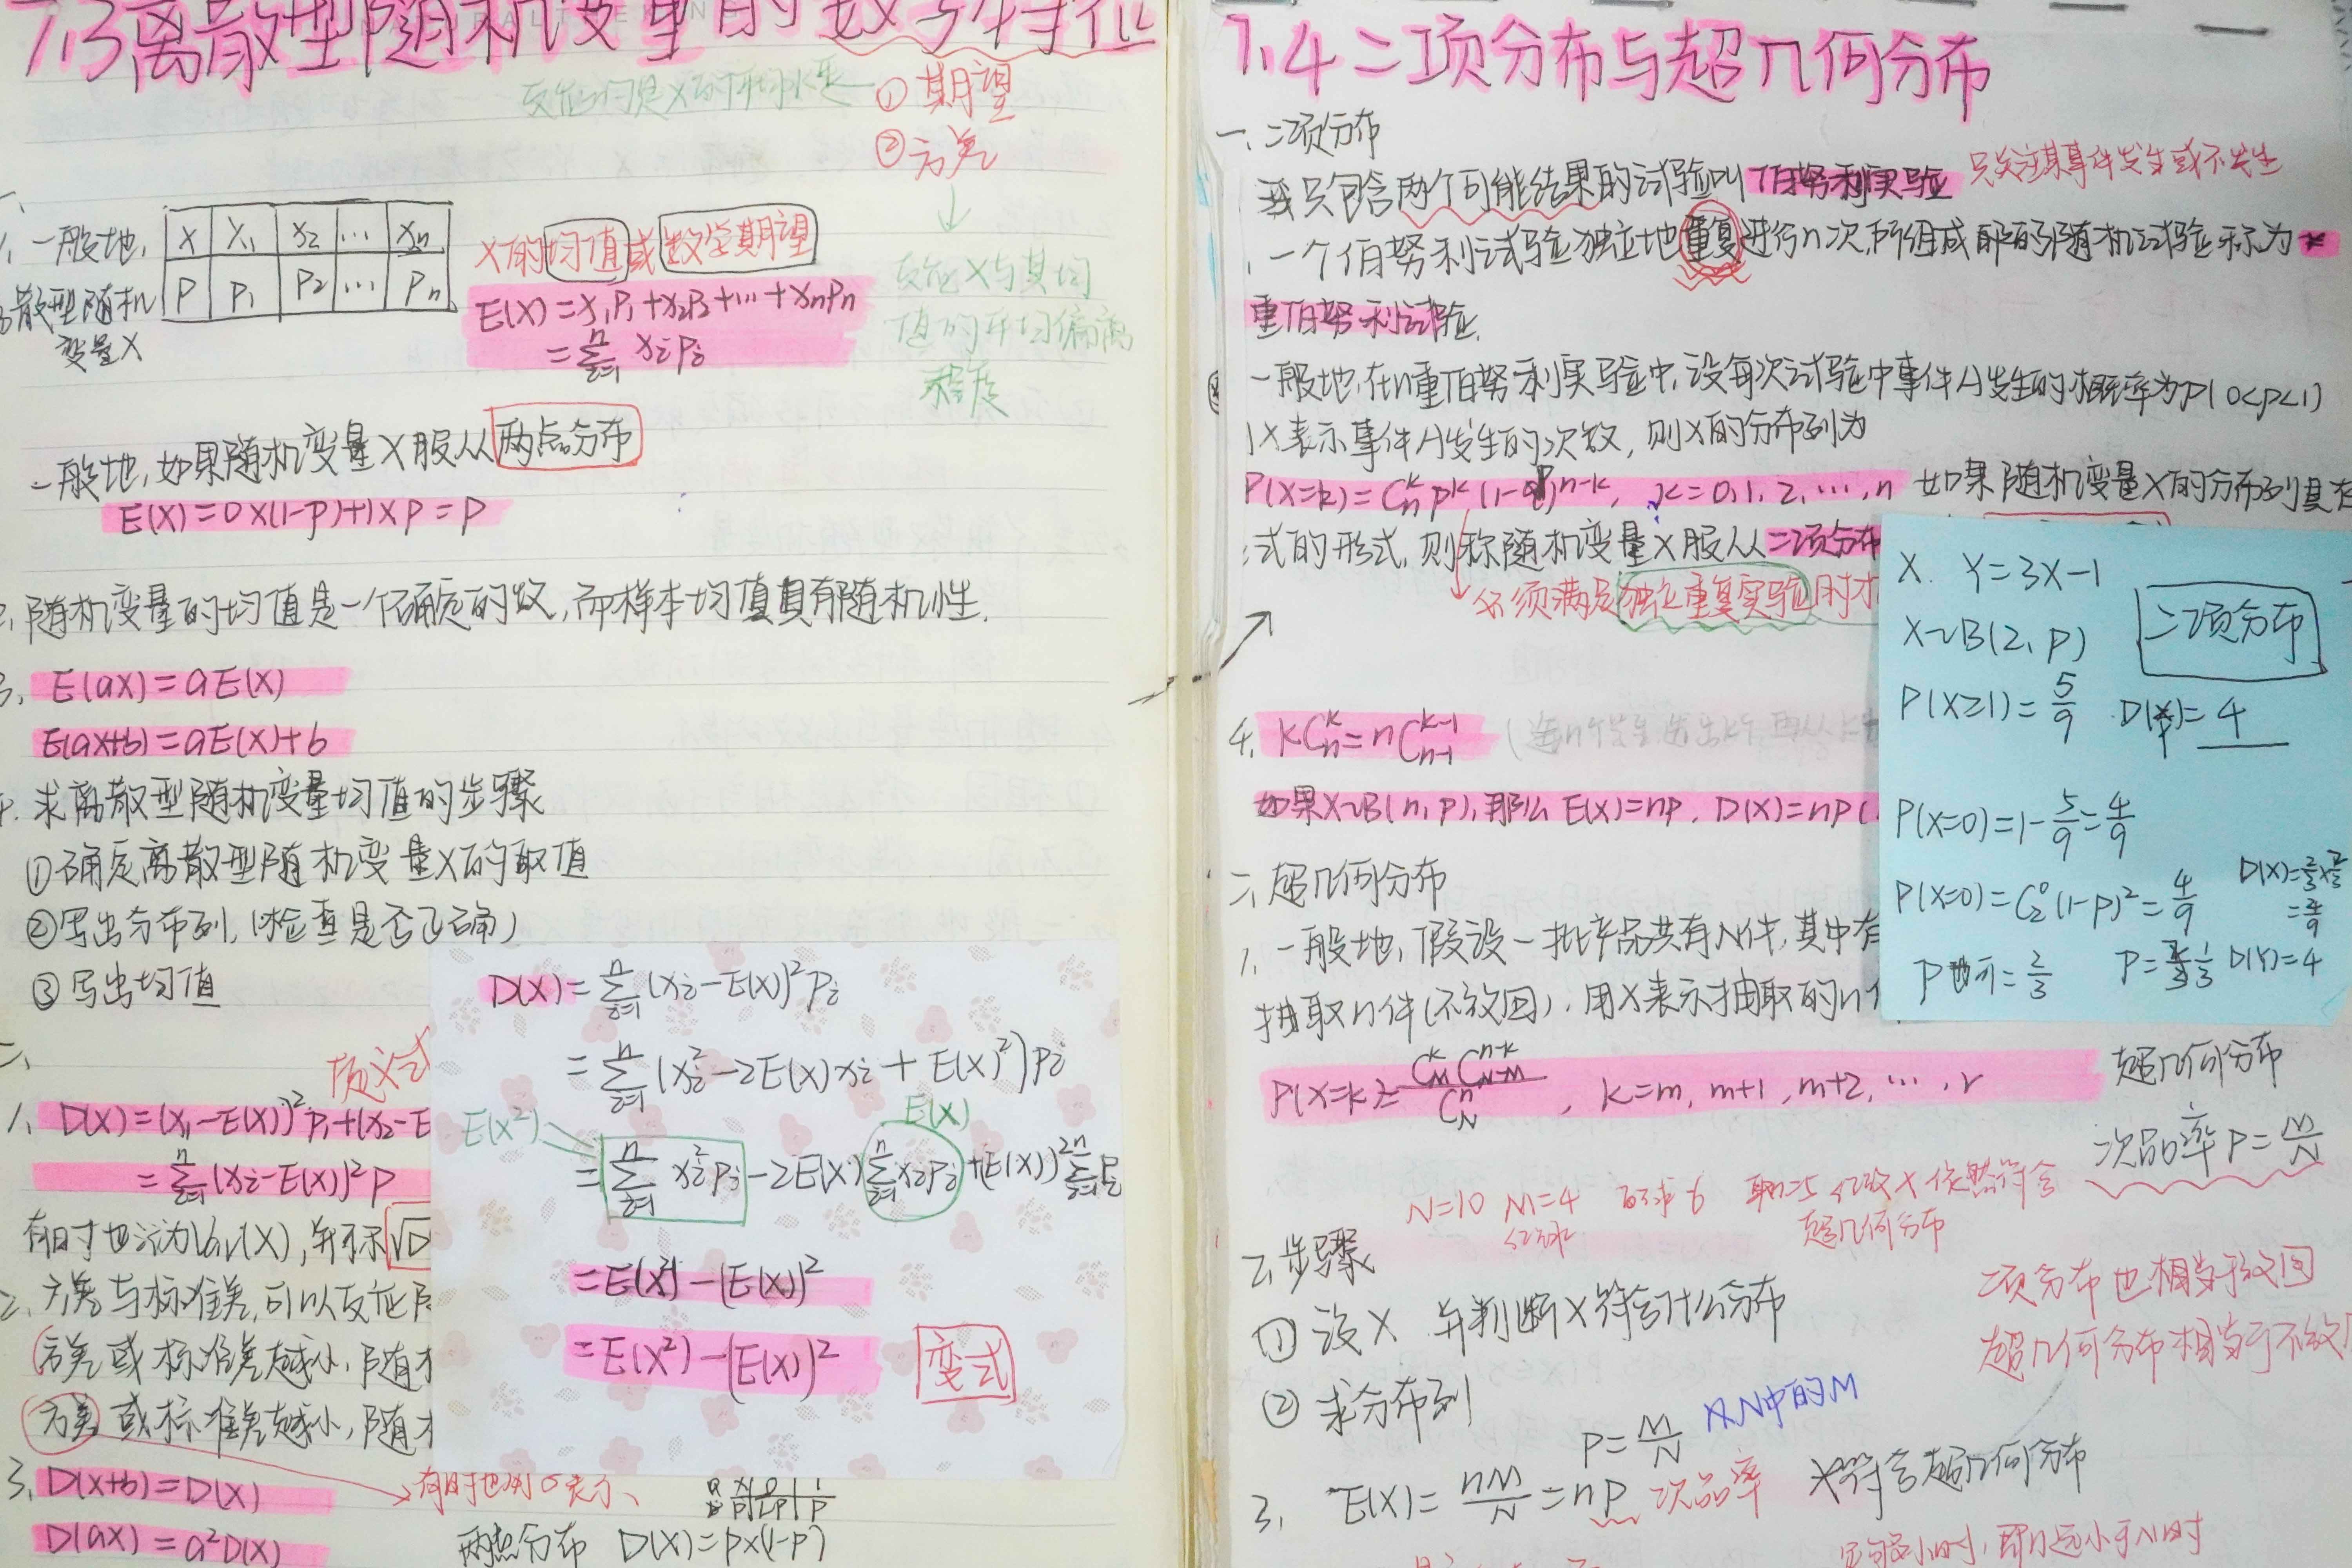 7.3离散型随机变量的数字特征
反应的是X的平均水平
①期望
②方差
反应X与其均
值的平均偏离
程度
一、
1、一般地,
X X₁ X₂ … Xₙ
P P₁ P₂ … Pₙ
散型随机
变量X
X的均值或数学期望
E(X)=X₁P₁+X₂P₂+…+XₙPₙ
=∑ᵢ₌₁ⁿ XᵢPᵢ
一般地,如果随机变量X服从两点分布
E(X)=0×(1-p)+1×p=p
2、随机变量的均值是一个确定的数,而样本均值具有随机性.
3、E(aX)=aE(X)
E(aX+b)=aE(X)+b
4. 求离散型随机变量均值的步骤
①确定离散型随机变量X的取值
②写出分布列,(检查是否正确)
③写出均值
二、
1、D(X)=(X₁-E(X))²P₁+(X₂-E
=∑ᵢ₌₁ⁿ(Xᵢ-E(X))²P
有时也记为Var(X),并称√D
2、方差与标准差,可以反应
方差或标准差越小,随
方差或标准差越小,随
3、D(X+b)=D(X)
D(aX)=a²D(X)
有时也用σ表示、
X 0 1
P 1-P P
两点分布 D(X)=p×(1-p)
D(X)=∑ᵢ₌₁ⁿ(Xᵢ-E(X))²Pᵢ
=∑ᵢ₌₁ⁿ(Xᵢ²-2E(X)Xᵢ+E(X)²)Pᵢ
E(X²) E(X)
=∑ᵢ₌₁ⁿXᵢ²Pᵢ-2E(X)∑ᵢ₌₁ⁿXᵢPᵢ+(E(X))²∑ᵢ₌₁ⁿPᵢ
=E(X²)-(E(X))²
=E(X²)-(E(X))²
变式
7.4二项分布与超几何分布
一、二项分布
只包含两个可能结果的试验叫伯努利实验 只关注某事件发生或不发生
一个伯努利试验独立地重复进行n次,所组成的随机试验称为
重伯努利试验.
一般地,在n重伯努利实验中,设每次试验中事件A发生的概率为P(0<p<1)
X表示事件A发生的次数,则X的分布列为
P(X=k)=Cₙᵏpᵏ(1-p)ⁿ⁻ᵏ, k=0,1,2,…,n 如果随机变量X的分布列具有
式的形式,则称随机变量X服从二项分布
必须满足独立重复实验时才
4. kCₙᵏ=nCₙ₋₁ᵏ⁻¹
如果X~B(n,p),那么E(X)=np, D(X)=np(
二、超几何分布
1、一般地,假设一批产品共有N件,其中有
抽取n件(不放回),用X表示抽取的n
P(X=k)=C_Mᵏ C_{N-M}ⁿ⁻ᵏ/C_Nⁿ, k=m, m+1, m+2, …, r
超几何分布
次品率P=M/N
N=10 M=4 白球6 取n=5 红球X依然符合
红球 超几何分布
2、步骤
①设X 并判断X符合什么分布
②求分布列
二项分布也相当于放回
超几何分布相当于不放
P=M/N 从N中的M
3、E(X)=nM/N=np 次品率 X符合超几何分布
X. Y=3X-1
X~B(2,p)
二项分布
P(X≥1)=5/9 D(Y)=4
P(X=0)=1-5/9=4/9
P(X=0)=C₂⁰(1-p)²=4/9
D(X)=2/3×2/3
=4/9
P=1/3 D(Y)=4